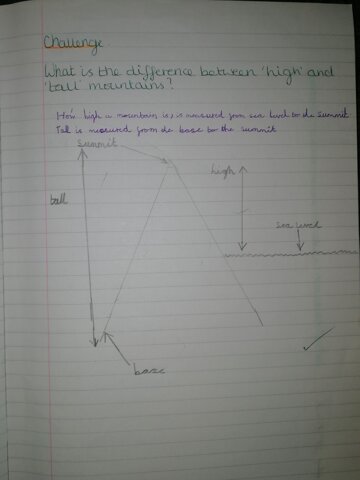 Challenge.
What is the difference between 'high' and
'tall' mountains?
How high a mountain is, is measured from sea level to the summit
Tall is mesured from the base to the summit
Summit
high
tall
sea level
base